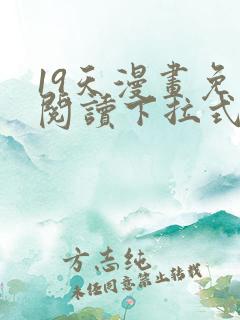 19天漫畫免
閱讀下拉式
方志纯
未经同意禁止转载